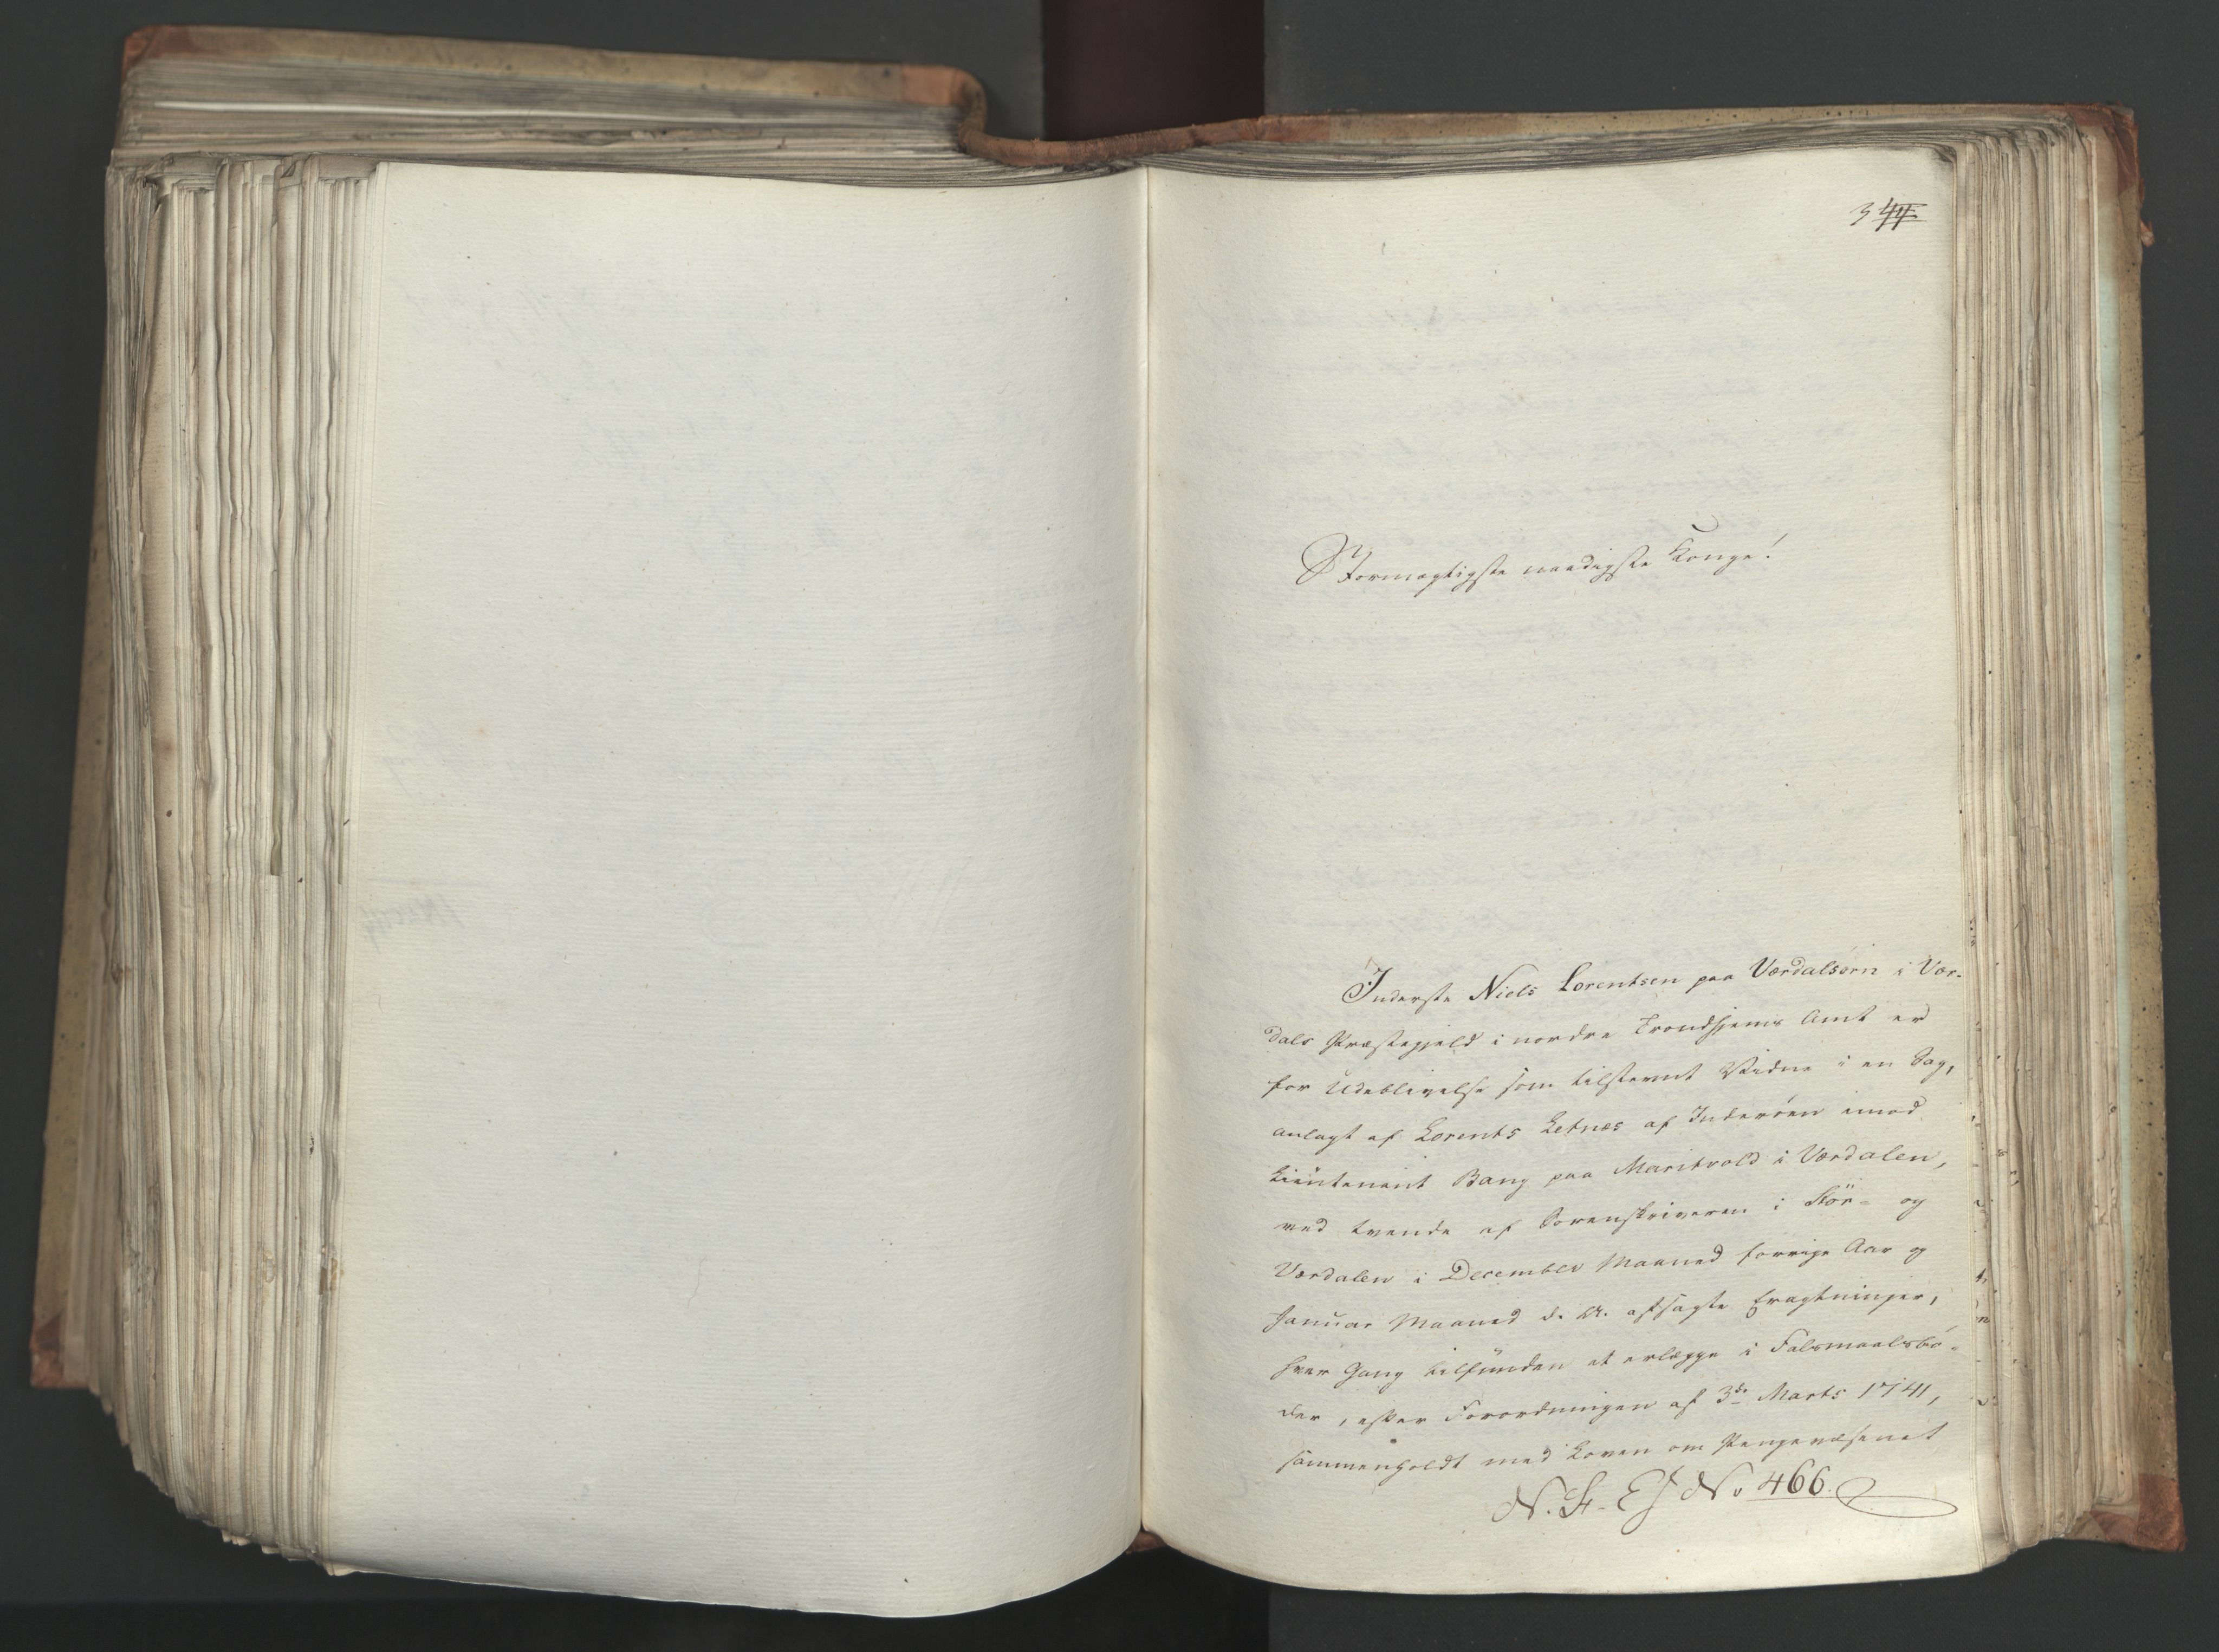 344.
Stormægtigste naadigste Konge!
Inderste Niels Lorentsen paa Værdalsörn i Vær-
dals Præstegjeld i nordre Trondhjems Amt er
for Udeblivelse som tilstevnt Vidne i en Sag,
anlagt af Lorents Letnæs af Inderöen imod
Lieutenant Bang paa Maritvold i Værdalen,
ved tvende af Sorenskriveren i Stör- og
Værdalen i December Maaned forrige Aar og
Januar Maaned d. A. afsagte Eragtninger,
hver Gang tilfunden at erlægge i Falsmaalsbö-
der, efter Forordningen af 3de Marts 1741,
sammenholdt med Loven om Pengevæsenet
No 466.